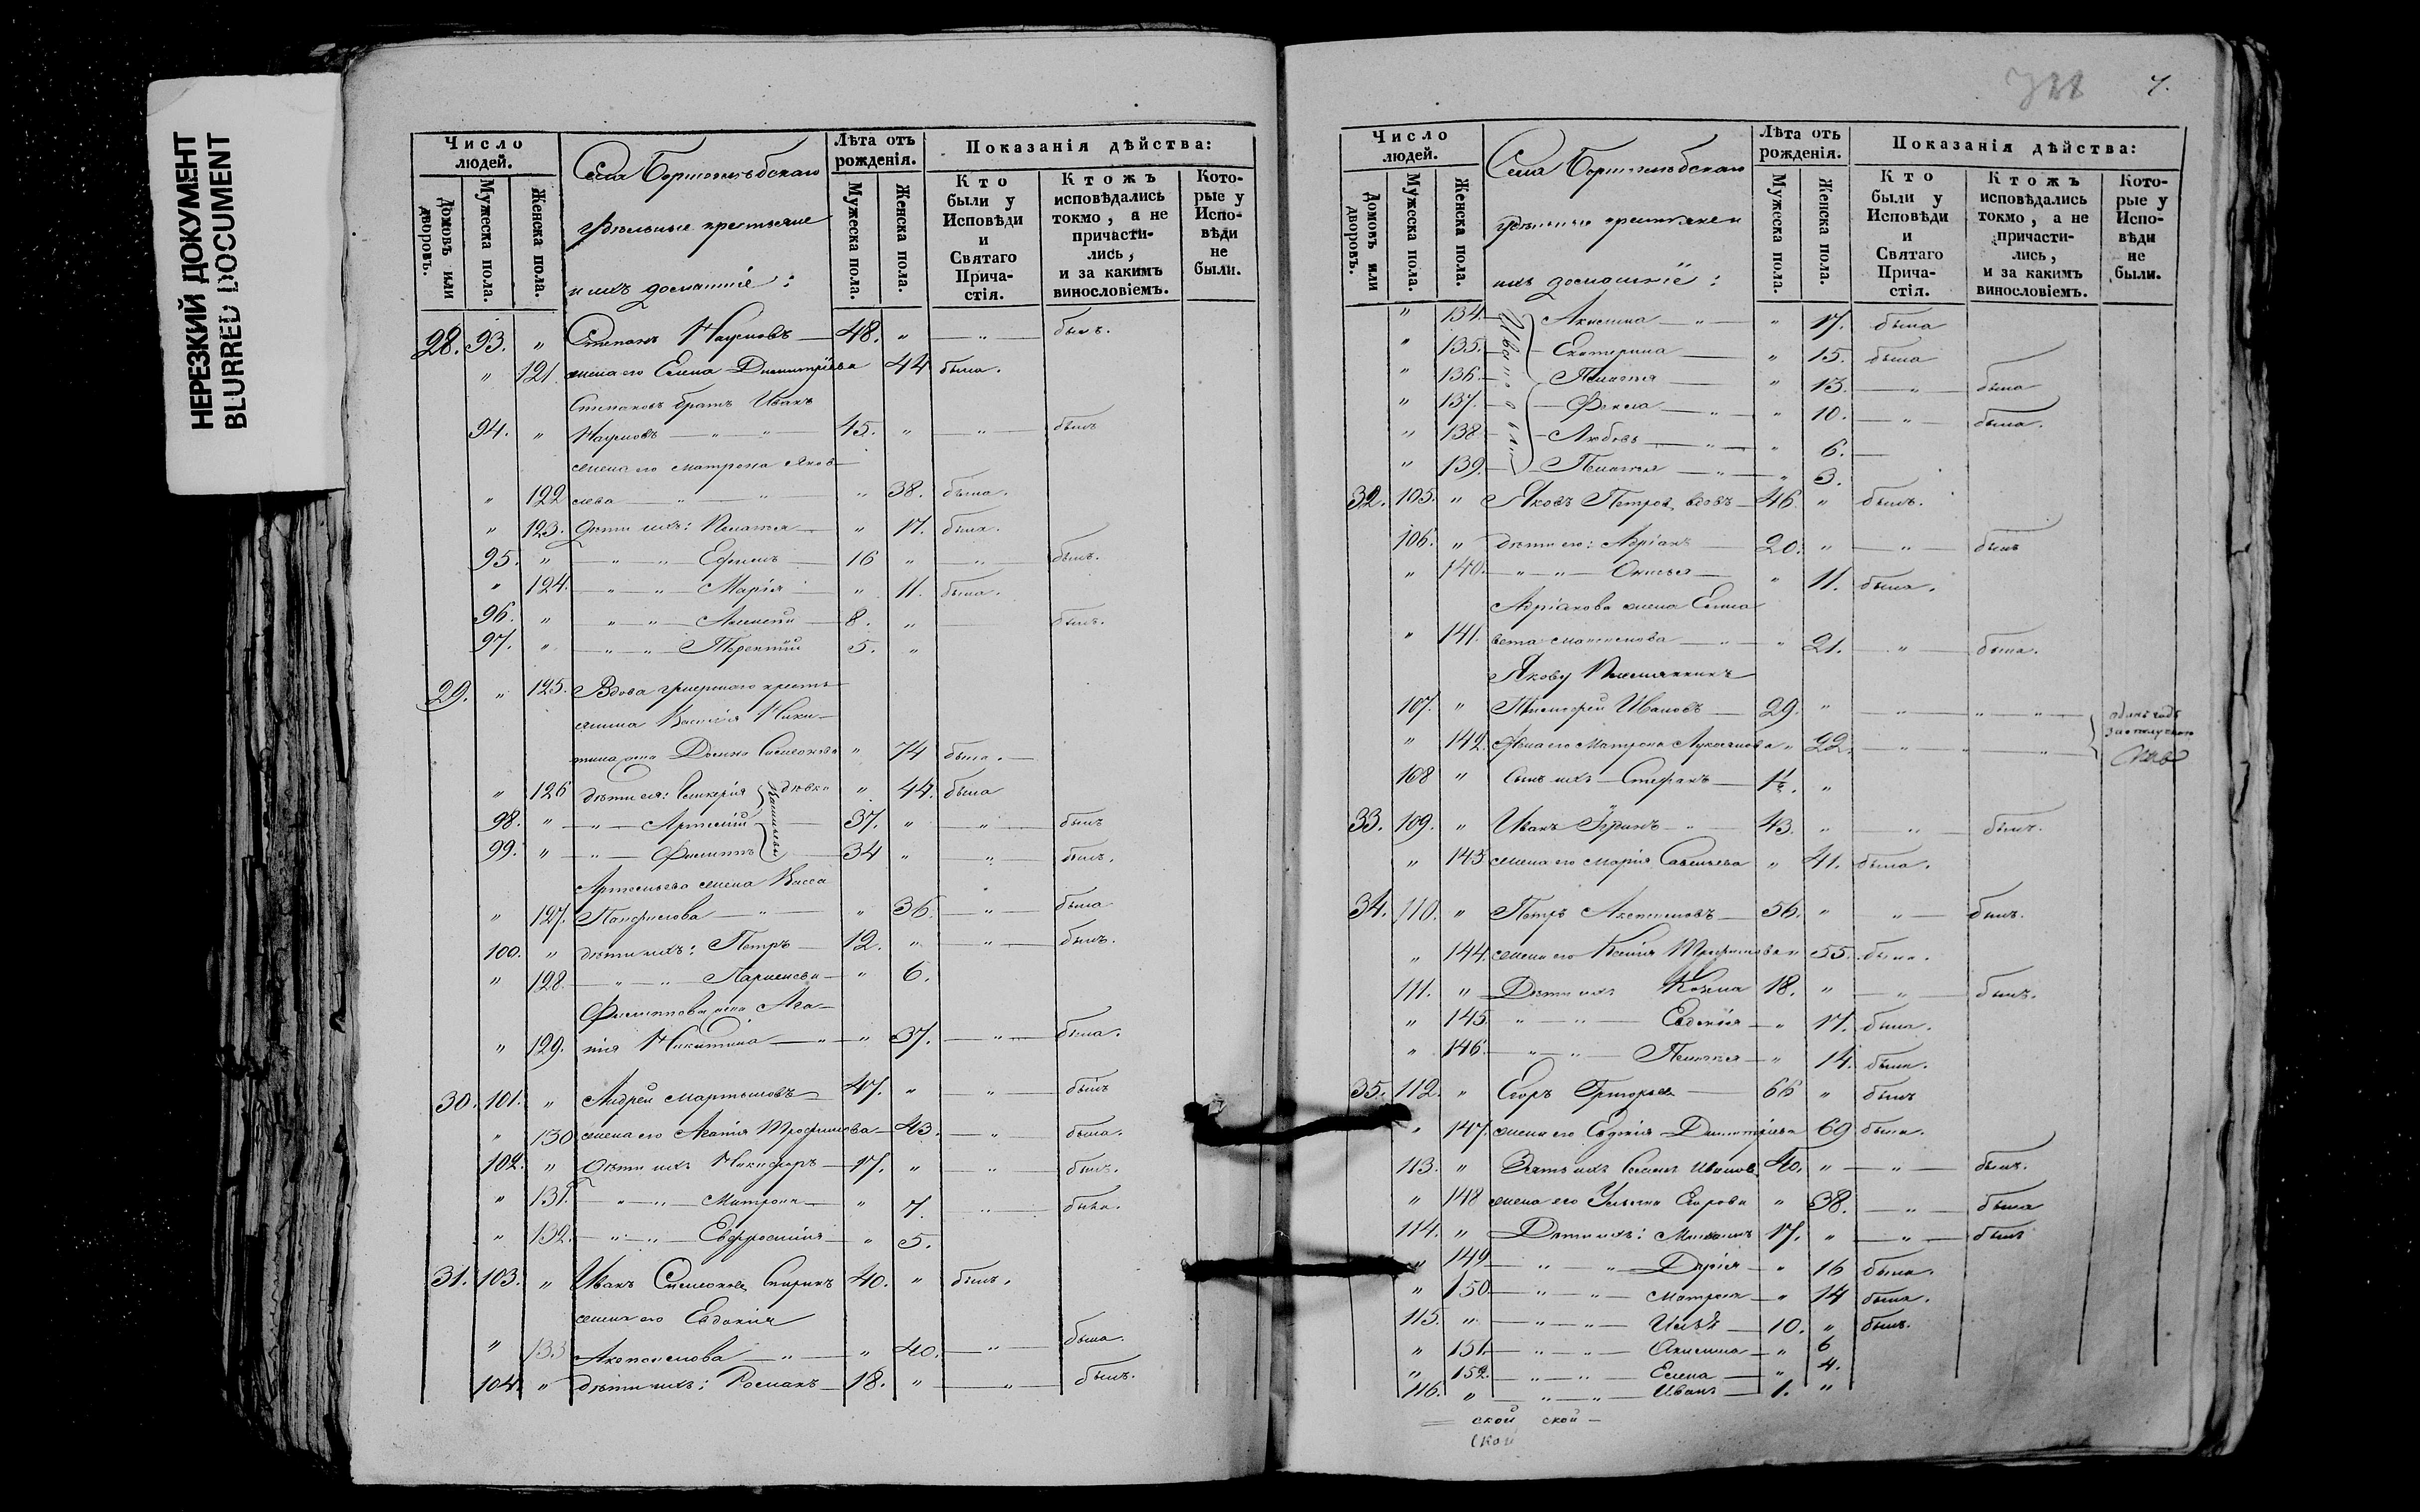 НЕРЕЗКИЙ ДОКУМЕНТ
BLURRED DOCUMENT
Число людей.
Домовъ или дворовъ.
Мужеска пола.
Женска пола.
Села
и ихъ домашніе:
Лѣта отъ рожденія.
Мужеска пола.
Женска пола.
Показанія дѣйства:
Кто были у Исповѣди и Святаго Прича- стія.
Ктожъ исповѣдались токмо, а не причасти- лись, и за какимъ винословіемъ.
Кото- рые у Испо- вѣди не были.
28. 93. " Степанъ Наумовъ — 48. " — " — былъ.
" 121. жена его Елена Димитріева 44 была.
Степановъ братъ Иванъ
94. " Наумовъ — " — " — 45. " — " — былъ
жена его Матрона Яков-
" 122 лева — " — " — " 38. была.
" 123. дѣти ихъ: Пелагея — " 17. была.
95. " — " — " — Ефимъ — 16 " — " — былъ.
" 124. — " — " — Марія — " 11. была.
96. " " — " — Алексей — 8. " — былъ.
97. " — " — " Терентій 5. "
29. " 125. Вдова крестья-
янина Василія Ники-
тина жена Домна Симеонова " 74 была. —
" 126 дѣти ея: Гликерія дѣвка " 44. была
98. " — " — Артемій — 37. " — " — былъ
99. " — " — Филиппъ — 34 " — " — былъ.
Артемьева жена Васса
" 127. Панфилова — " — " 36. — " — была
100. " дѣти ихъ: Петръ — 12. " — " — былъ.
" 128. — " — " — — " 6.
Филиппова жена Ага-
" 129. пія Никитина — " — " 37. — " — была.
30. 101. " Андрей Мартыновъ 47. " — " — былъ
" 130 жена его Агапія Трофимова — 43. — " — была.
102. " Дѣти ихъ Никифоръ — 17. " — " — былъ.
" 131. — " — " — Матрона — " 7. — " — была.
" 132. — " — " — Евфросинія — " 5.
31. 103. " Иванъ Симеоновъ Спиринъ 40. " былъ.
жена его Евдокія
" 133 — " — " 40. — " — была.
104. " дѣти ихъ: Романъ — 18. " — " — былъ.
7.
Число людей.
Домовъ или дворовъ.
Мужеска пола.
Женска пола.
Села
ихъ домашніе:
Лѣта отъ рожденія.
Мужеска пола.
Женска пола.
Показанія дѣйства:
Кто были у Исповѣди и Святаго Прича- стія.
Ктожъ исповѣдались токмо, а не причасти- лись, и за какимъ винословіемъ.
Кото- рые у Испо- вѣди не были.
" 134. — Акилина — " — " 17. была
" 135. — Екатерина — " 15. была
" 136. — Пелагія — " 13. — " — была
" 137. — Фекла — " — " 10. — " — была.
" 138 — Любовь — " — " 6. —
" 139. — Пелагея — " — " 3.
32. 105. " Яковъ Петровъ вдовъ — 46 " былъ.
106. " дѣти его: Адріанъ — 20. " — " — былъ
" 140. — " — " — — " 11. была.
Адріанова жена Елиса
" 141. вета Максимова — " — " 21. — " — была.
Якову Племянникъ
107. " Тимофей Ивановъ — 29. " — " — " — " —
" 142. жена его Матрона " 22. — " — " — " —
108 " Сынъ ихъ — Стефанъ — 1½. "
33. 109. " Иванъ — 43. " — " — былъ.
" 143 жена его Марія Савельева " 41. была.
34. 110. " Петръ — 56. " — " — былъ.
" 144. жена его Ксенія Трофимова " 55. была.
111. " Дѣти ихъ Козма 18. " — " — былъ.
" 145. " — " — Евдокія — " 17. была.
" 146. — " — " — Пелагея — " 14. была.
35. 112. " Егоръ Григорьев — 66 " былъ
" 147. жена его Евдокія Димитріева 69 была.
113. " Зять ихъ Семенъ Ивановъ 40. " — " — былъ.
" 148 жена его Ульяна Егорова " 38. — " — была
114. " Дѣти ихъ: Михаилъ 17. " — " — былъ
" 149 — " — " — Дарія — " 16 была.
" 150. — " — " — Матрона — " 14 была.
115. " — " — " — Илья — 10. " былъ.
" 151. — " — " — Акилина — " 6
" 152. — " — " — Елена — " 4.
116. " — " — " — Иванъ — 1. "
ской ской —
ской